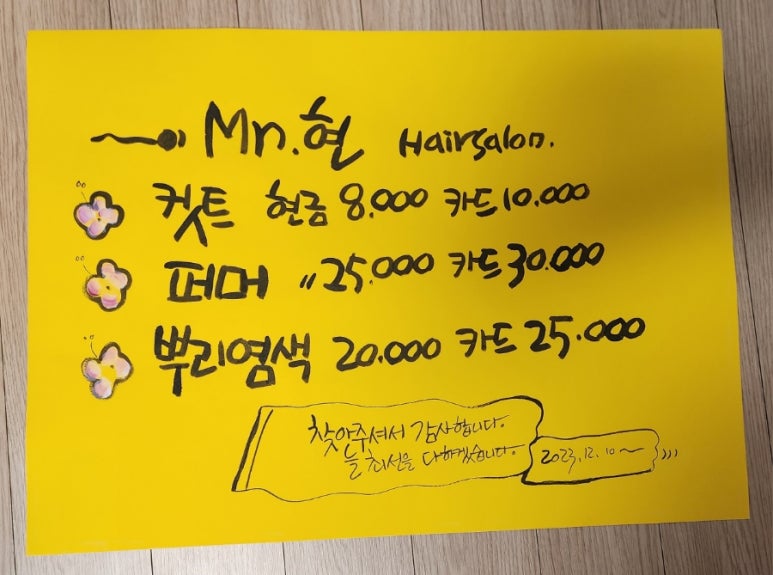 Mr.현 Hairsalon.
컷트 현금 8.000 카드 10.000
퍼머 〃 25.000 카드 30.000
뿌리염색 20.000 카드 25.000
찾아주셔서 감사합니다.
늘 최선을 다하겠습니다.
2023.12.10~